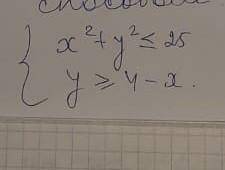 x² + y² ≤ 25
y ≥ 4 - x.